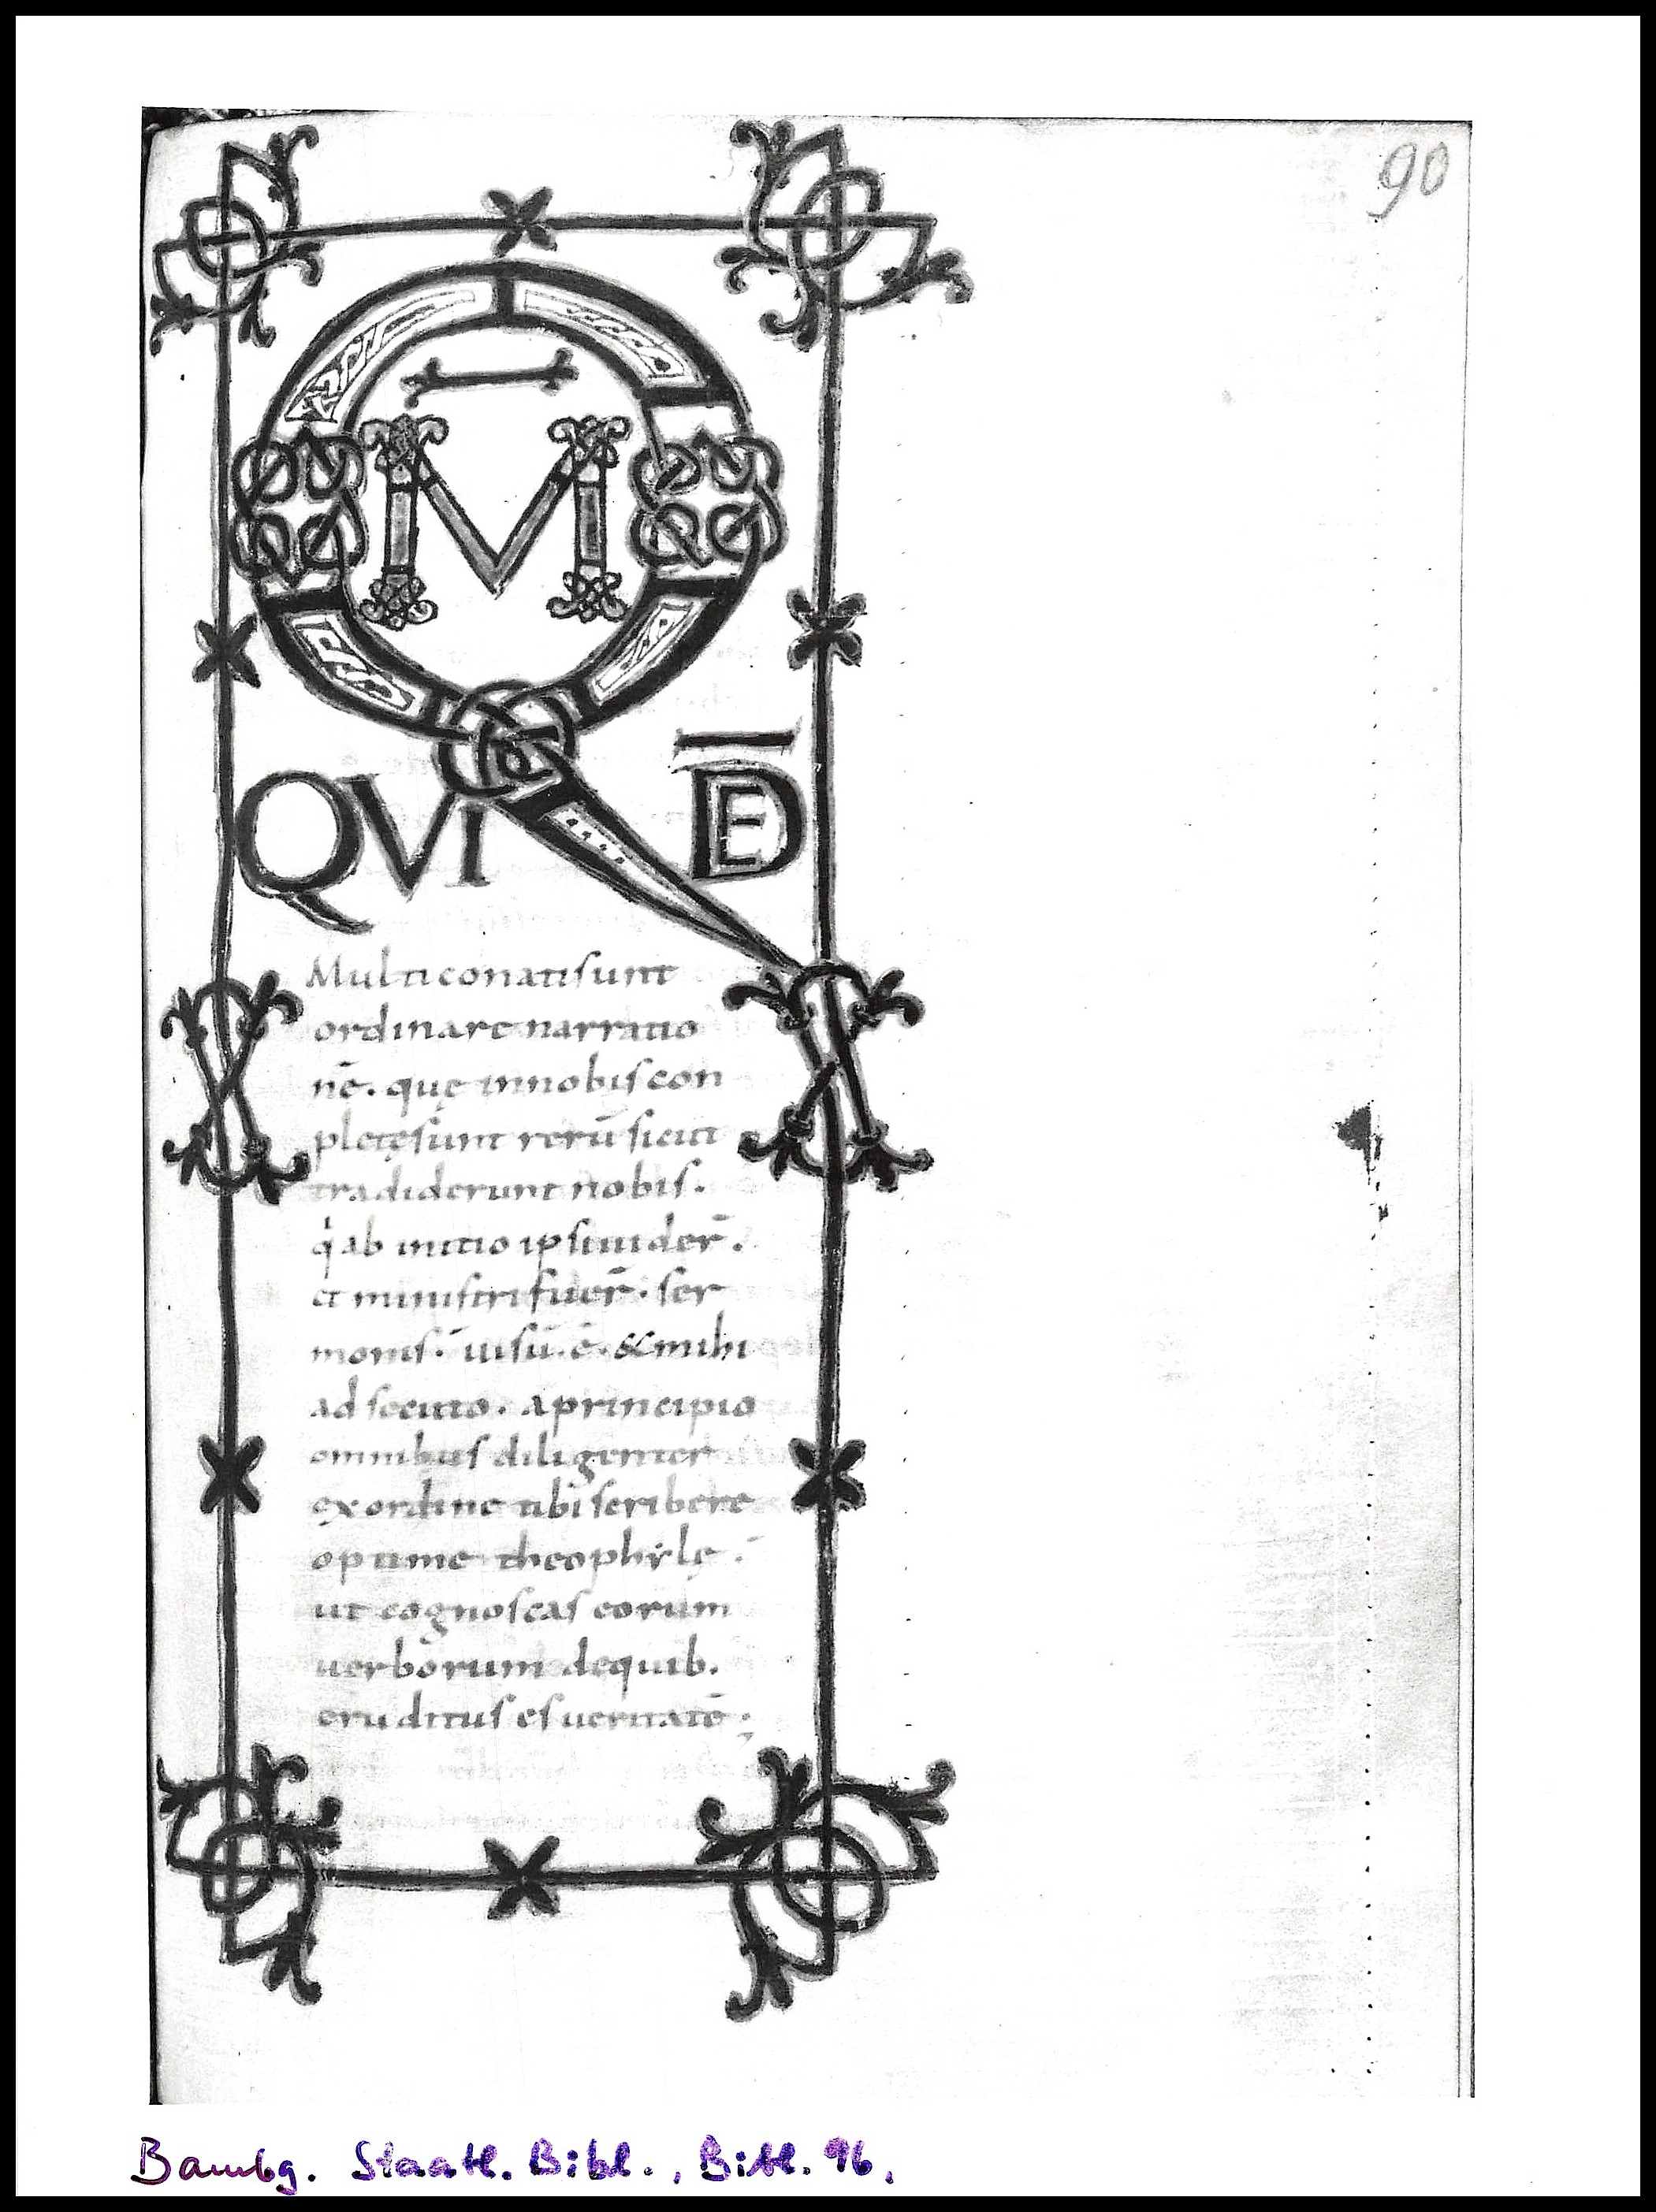 90
Q M̄
QVI D̄E
Multi conati sunt
ordinare narratio
nē. quę in nobis con
pletę sunt rerū sicut
tradiderunt nobis.
qͥ ab initio ipsi uider̄.
et ministri fuer̄. ser
monis. uisū. ē. & mihi
adsecuto. a principio
omnibus diligenter
ex ordine tibi scribere
optime theophylę.
ut cognoscas eorum
uerborum de quib.
eruditus es ueritatē;
Bambg. Staatl. Bibl., Bibl. 96.